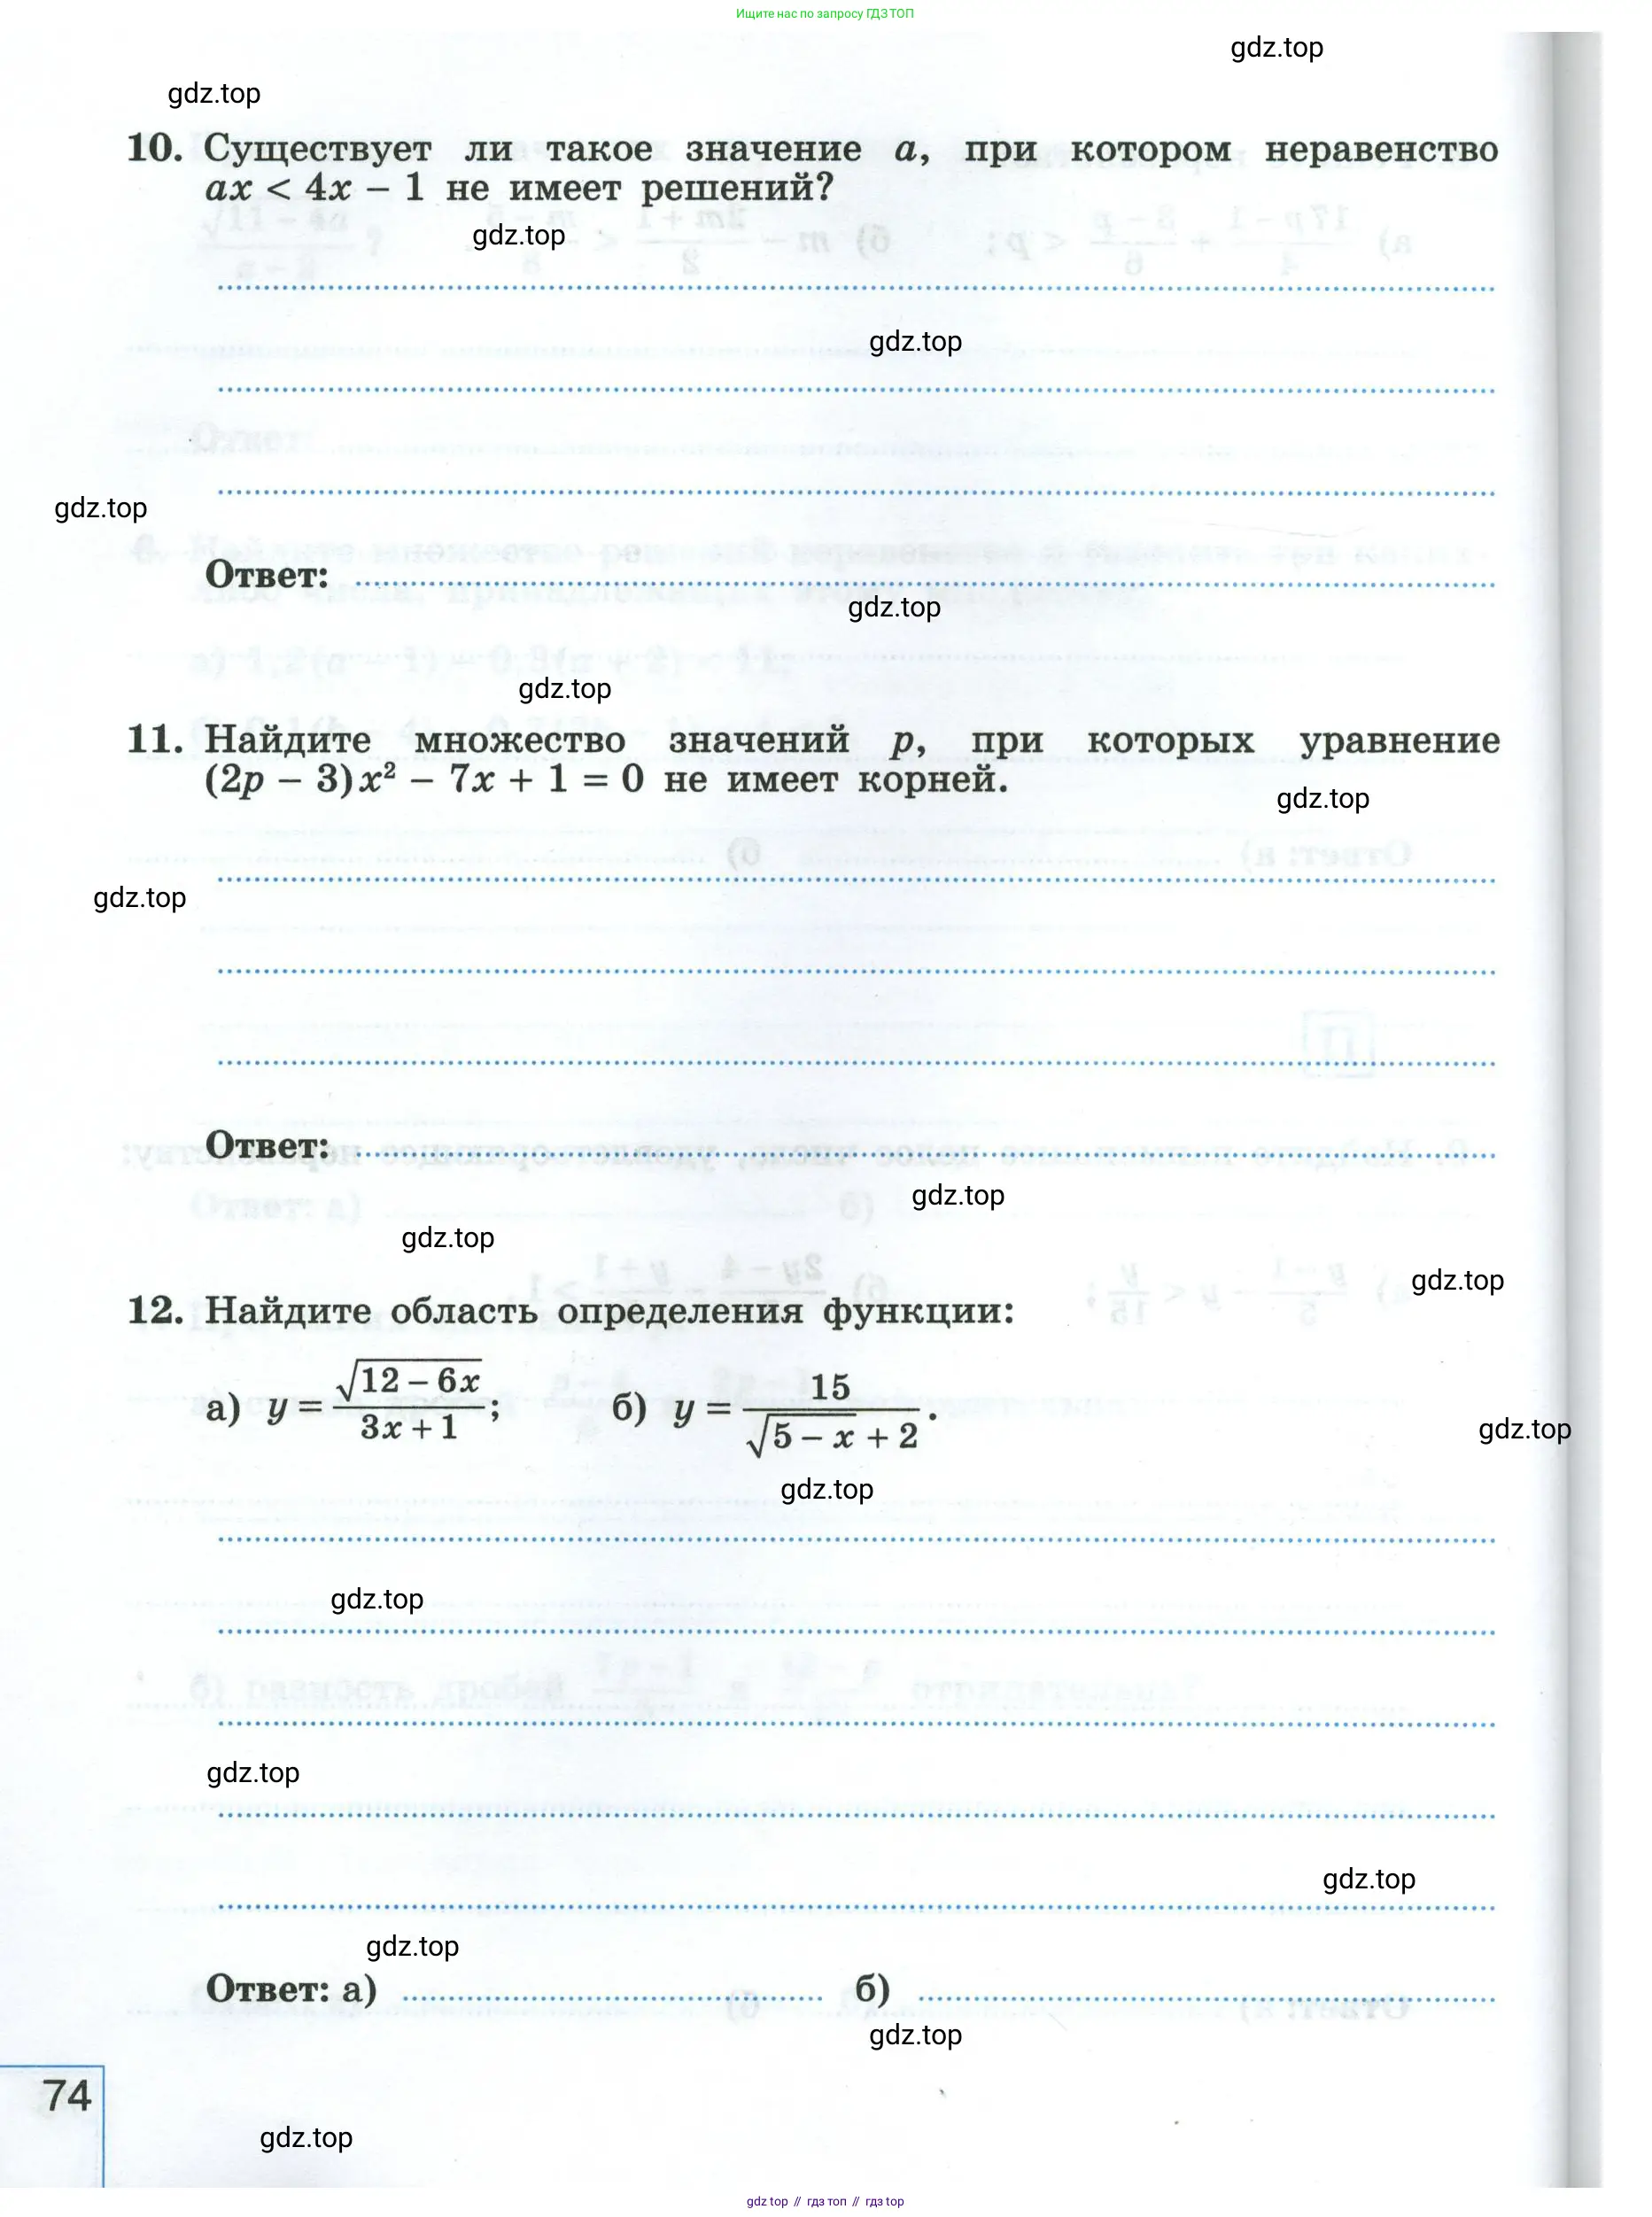 Ищите нас по запросу ГДЗ ТОП
gdz.top
gdz.top
10. Существует ли такое значение a, при котором неравенство
ax < 4x − 1 не имеет решений?
gdz.top
gdz.top
gdz.top
Ответ:
gdz.top
gdz.top
11. Найдите множество значений p, при которых уравнение
(2p − 3)x² − 7x + 1 = 0 не имеет корней.
gdz.top
gdz.top
Ответ:
gdz.top
gdz.top
gdz.top
12. Найдите область определения функции:
а) y = √(12 − 6x) / (3x + 1); б) y = 15 / (√(5 − x) + 2).
gdz.top
gdz.top
gdz.top
gdz.top
gdz.top
gdz.top
Ответ: а) б)
gdz.top
74
gdz.top
gdz top // гдз топ // гдз top